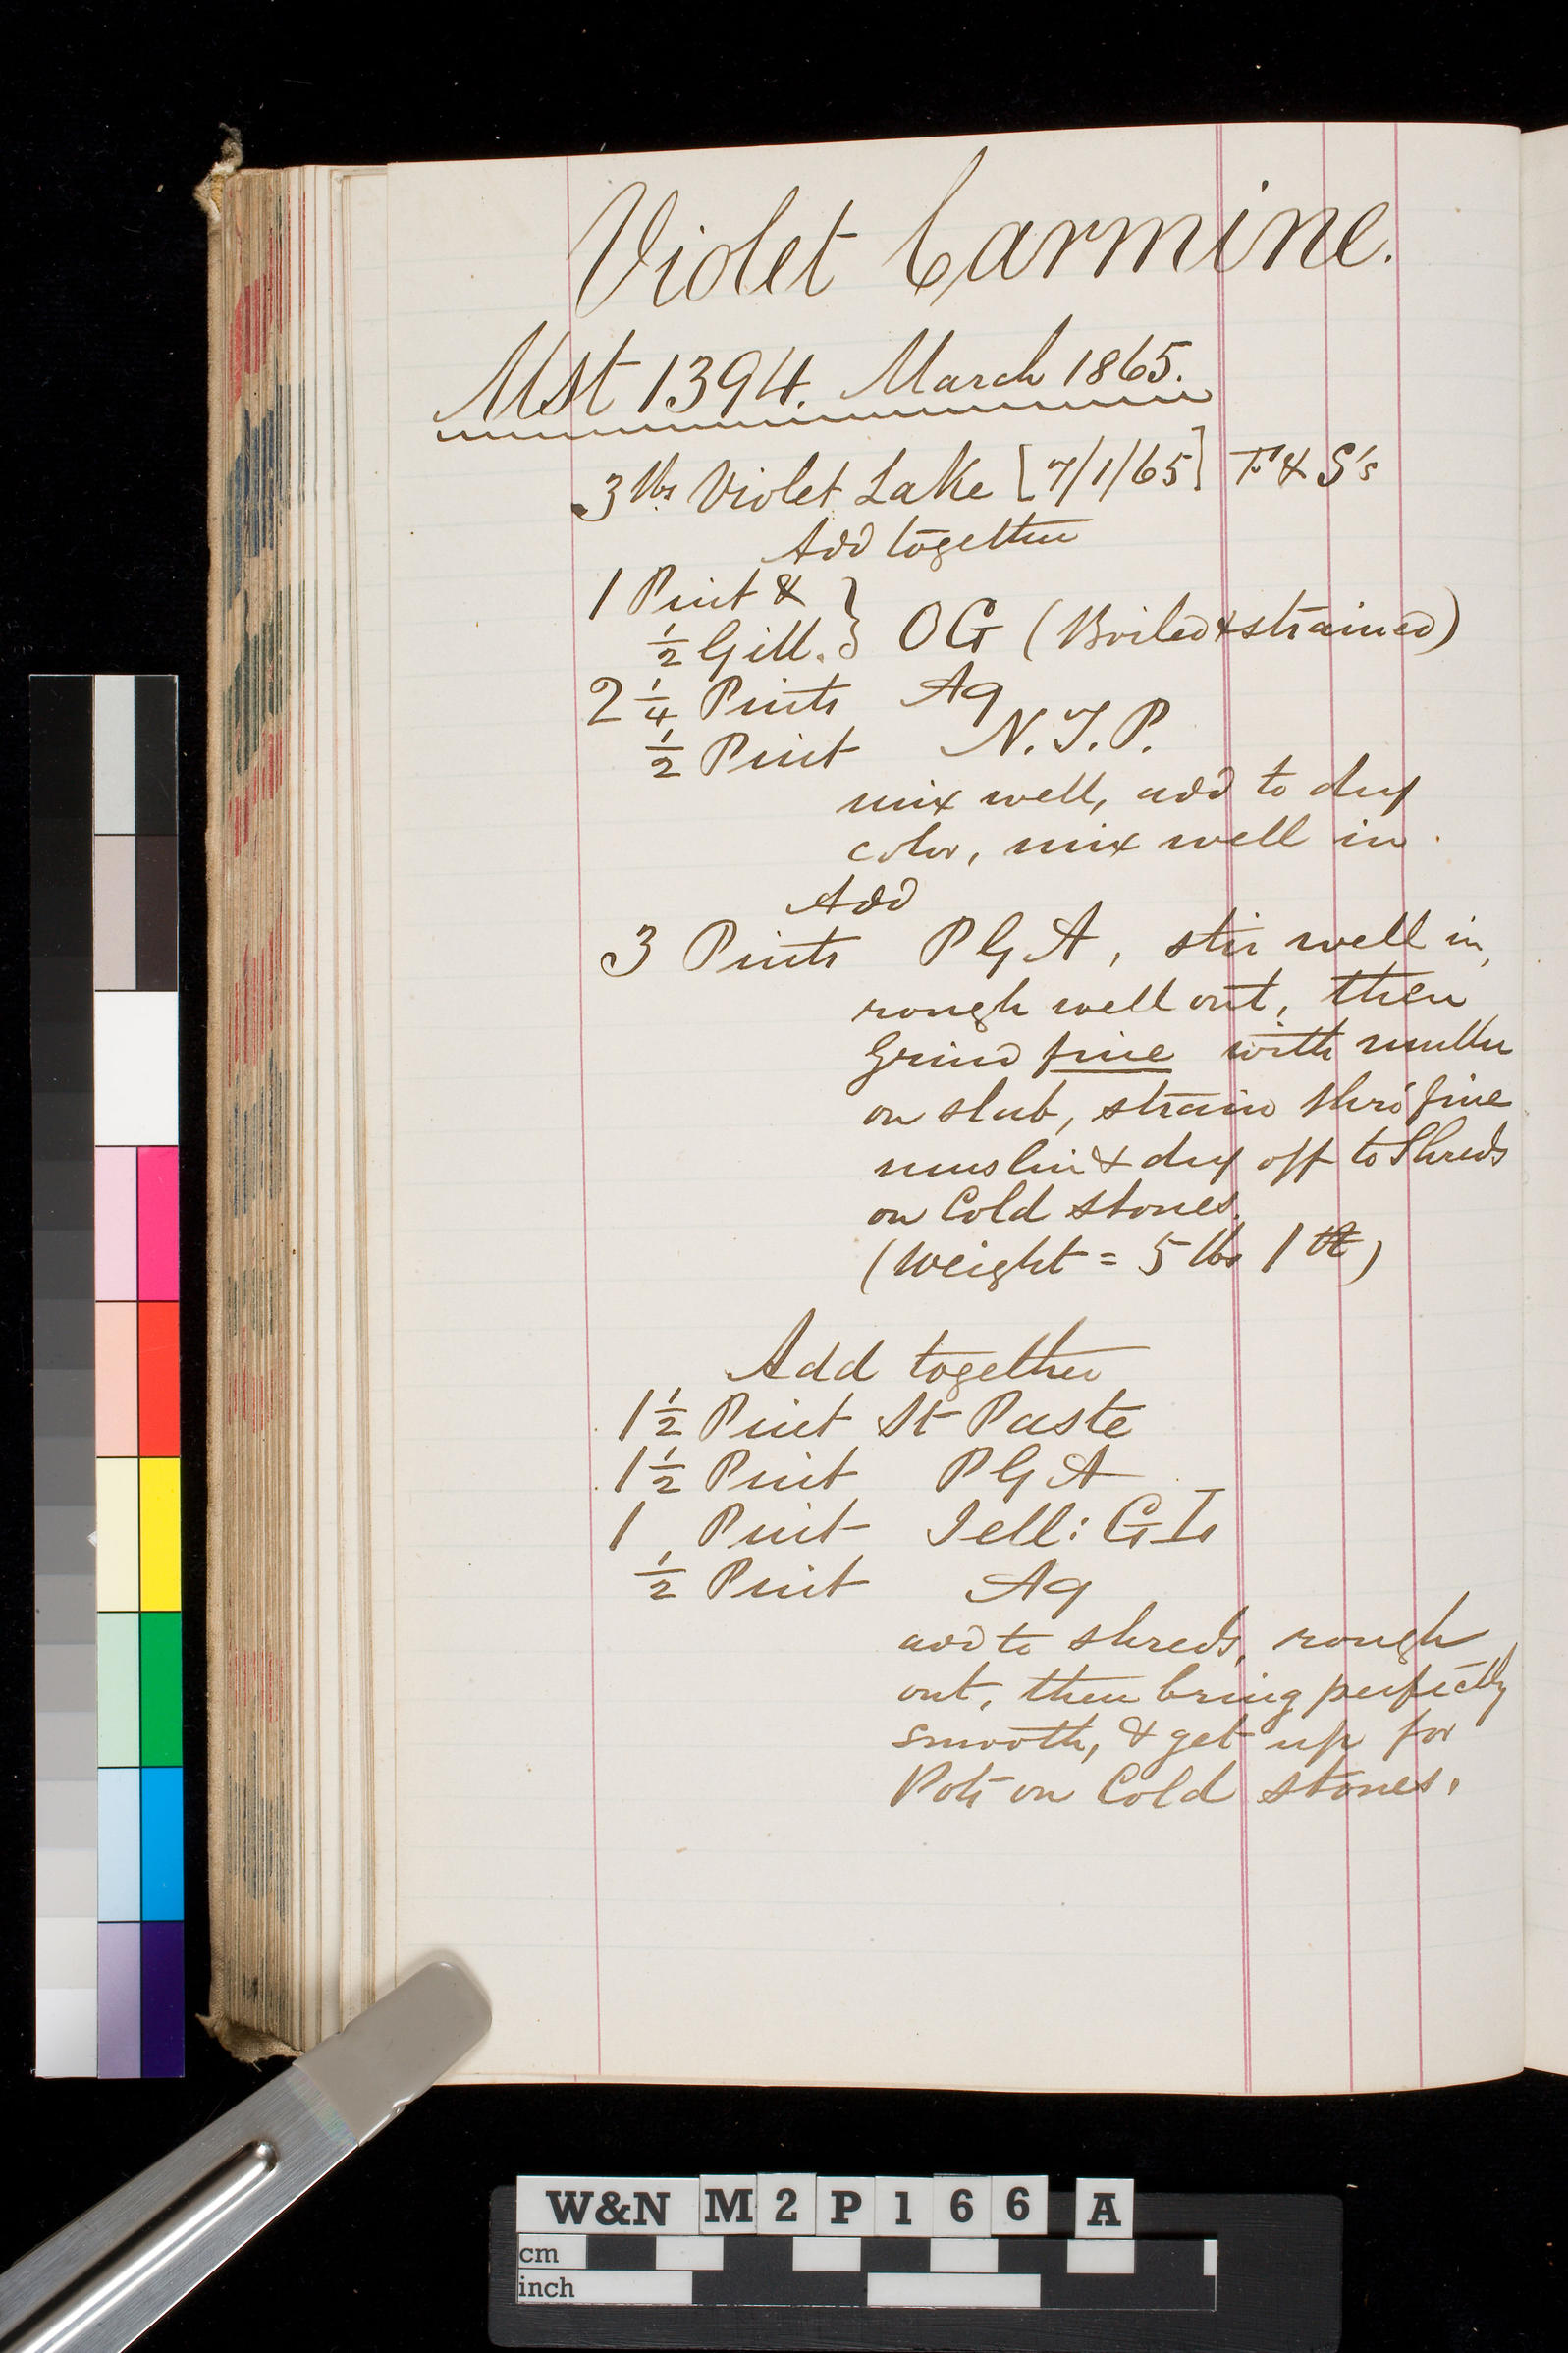 Violet Carmine.
Mst 1394. March 1865.
3 lbs Violet Lake [7/1/65] F & S's
Add together
1 Pint &
½ Gill. } OG (Boiled & strained)
2 ¼ Pints Aq
½ Pint N.T.P.
mix well, add to dry
color, mix well in.
Add
3 Pints PGA, stir well in,
rough well out, then
Grind fine with muller
on slab, strain thro' fine
muslin & dry off to Shreds
on Cold stones.
(Weight = 5 lbs 1
Add together
1½ Pint St Paste
1½ Pint PGA
1 Pint Jell: GIs
½ Pint Aq
add to shreds, rough
out, then bring perfectly
smooth, & get up for
Pots on Cold stones.
W&N M2P166 A
cm
inch